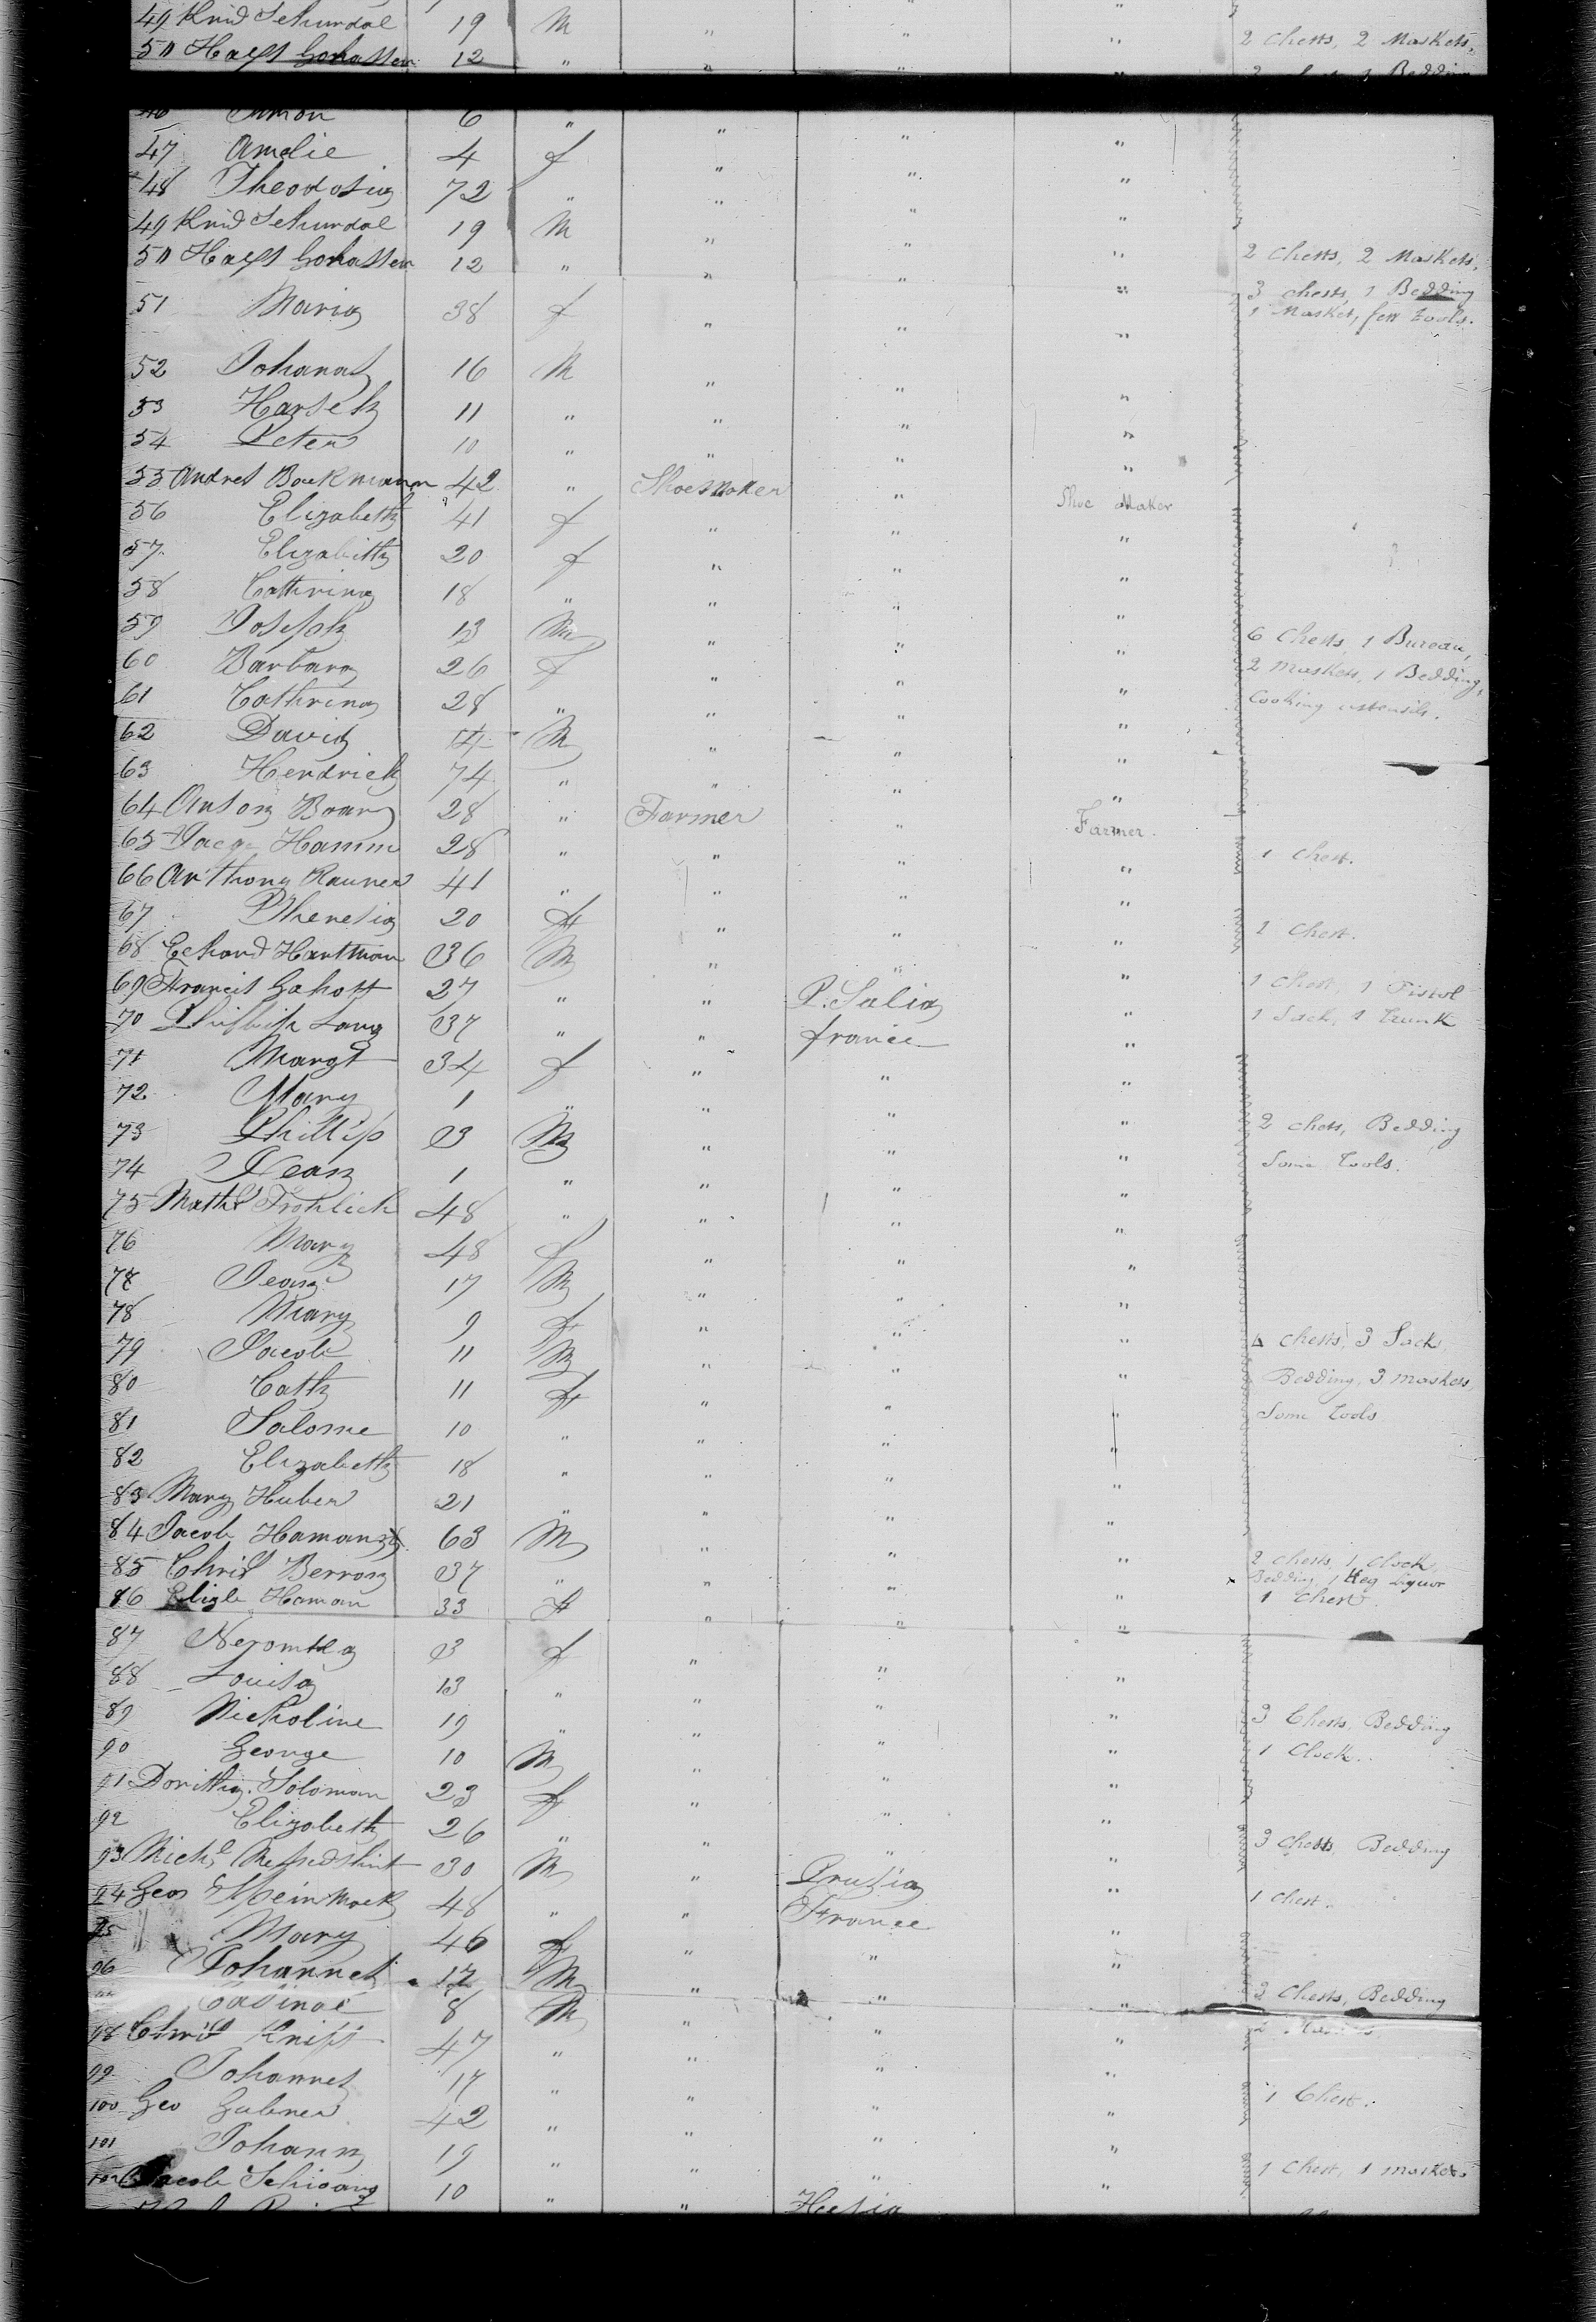 49 Knid Schurdal 19 M " " " 
50 Hays Gohassen 12 " " " " 2 Chests, 2 Maskets,
46 Simon 6 " " "
47 Amelie 4 f " " "
48 Theodosia 72 " " " "
49 Knid Schurdal 19 M " " "
50 Hays Gohassen 12 " " " " 2 Chests, 2 Maskets,
51 Maria 38 f " " " 3 Chests, 1 Bedding
1 Masket, few tools.
52 Johanas 16 M " " "
53 11 " " " "
54 Peter 10 " " " "
55 Andres Backmann 42 " Shoemaker " Shoe Maker
56 Elizabeth 41 f " " "
57 Elizabeth 20 f " " "
58 Cathrina 18 " " " "
59 Joseph 13 M " " " 6 Chests, 1 Bureau,
60 Barbara 26 f " " " 2 Maskets, 1 Bedding,
61 Cathrina 28 " " " " Cooking utensils.
62 David M " " "
63 Hendrick 74 " " " "
64 Anton Boar 28 " Farmer " Farmer.
65 Hamm 28 " " " " 1 Chest.
66 Anthony Rauner 41 " " " "
67 Theresia 20 f " " " 1 Chest.
68 Echard Hartman 36 M " " "
69 Francis Gahott 27 " " 1 Chest, 1 Pistol
70 Phillip Lang 37 " " france " 1 Sack, 1 Trunk
71 Margt 34 f " " "
72 Mary 1 " " " "
73 Phillip 3 M " " " 2 Chests, Bedding
74 Jean 1 " " " " Some Tools.
75 Maths Frohlich 48 " " " "
76 Mary 48 f " " "
78 Jean 17 M " " "
78 Mary 9 f " " "
79 Jacob 11 M " " " 4 Chests, 3 Sack,
80 Cath 11 f " " " Bedding, 3 Maskets,
81 Salome 10 " " " " Some Tools
82 Elizabeth 18 " " " "
83 Mary Huber 21 " " " "
84 Jacob Haman 63 M " " "
85 Chris Berron 37 " " " " 2 Chests, 1 Clock,
Bedding, 1 Keg Liquor
86 Haman 33 f " " " 1 Chest.
87 3 f " " "
88 Louisa 13 " " " "
89 Nicholine 19 " " " " 3 Chests, Bedding
90 George 10 M " " " 1 Clock.
91 Dorithy Soloman 23 f " " "
92 Elizabeth 26 " " " " 3 Chests, Bedding
93 Michl 30 M " Prusia "
94 Geo 48 " " France " 1 Chest.
95 Mary 46 f " " "
96 Johannes 17 M " " " 3 Chests, Bedding
8 M " " "
98 Chris Knipp 47 " " " "
99 Johannes 17 " " " " 1 Chest.
100 Geo Gubner 42 " " " "
101 Johann 19 " " " " 1 Chest, 1 Maskets
102 Jacob Schwang 10 " " "
Hesia